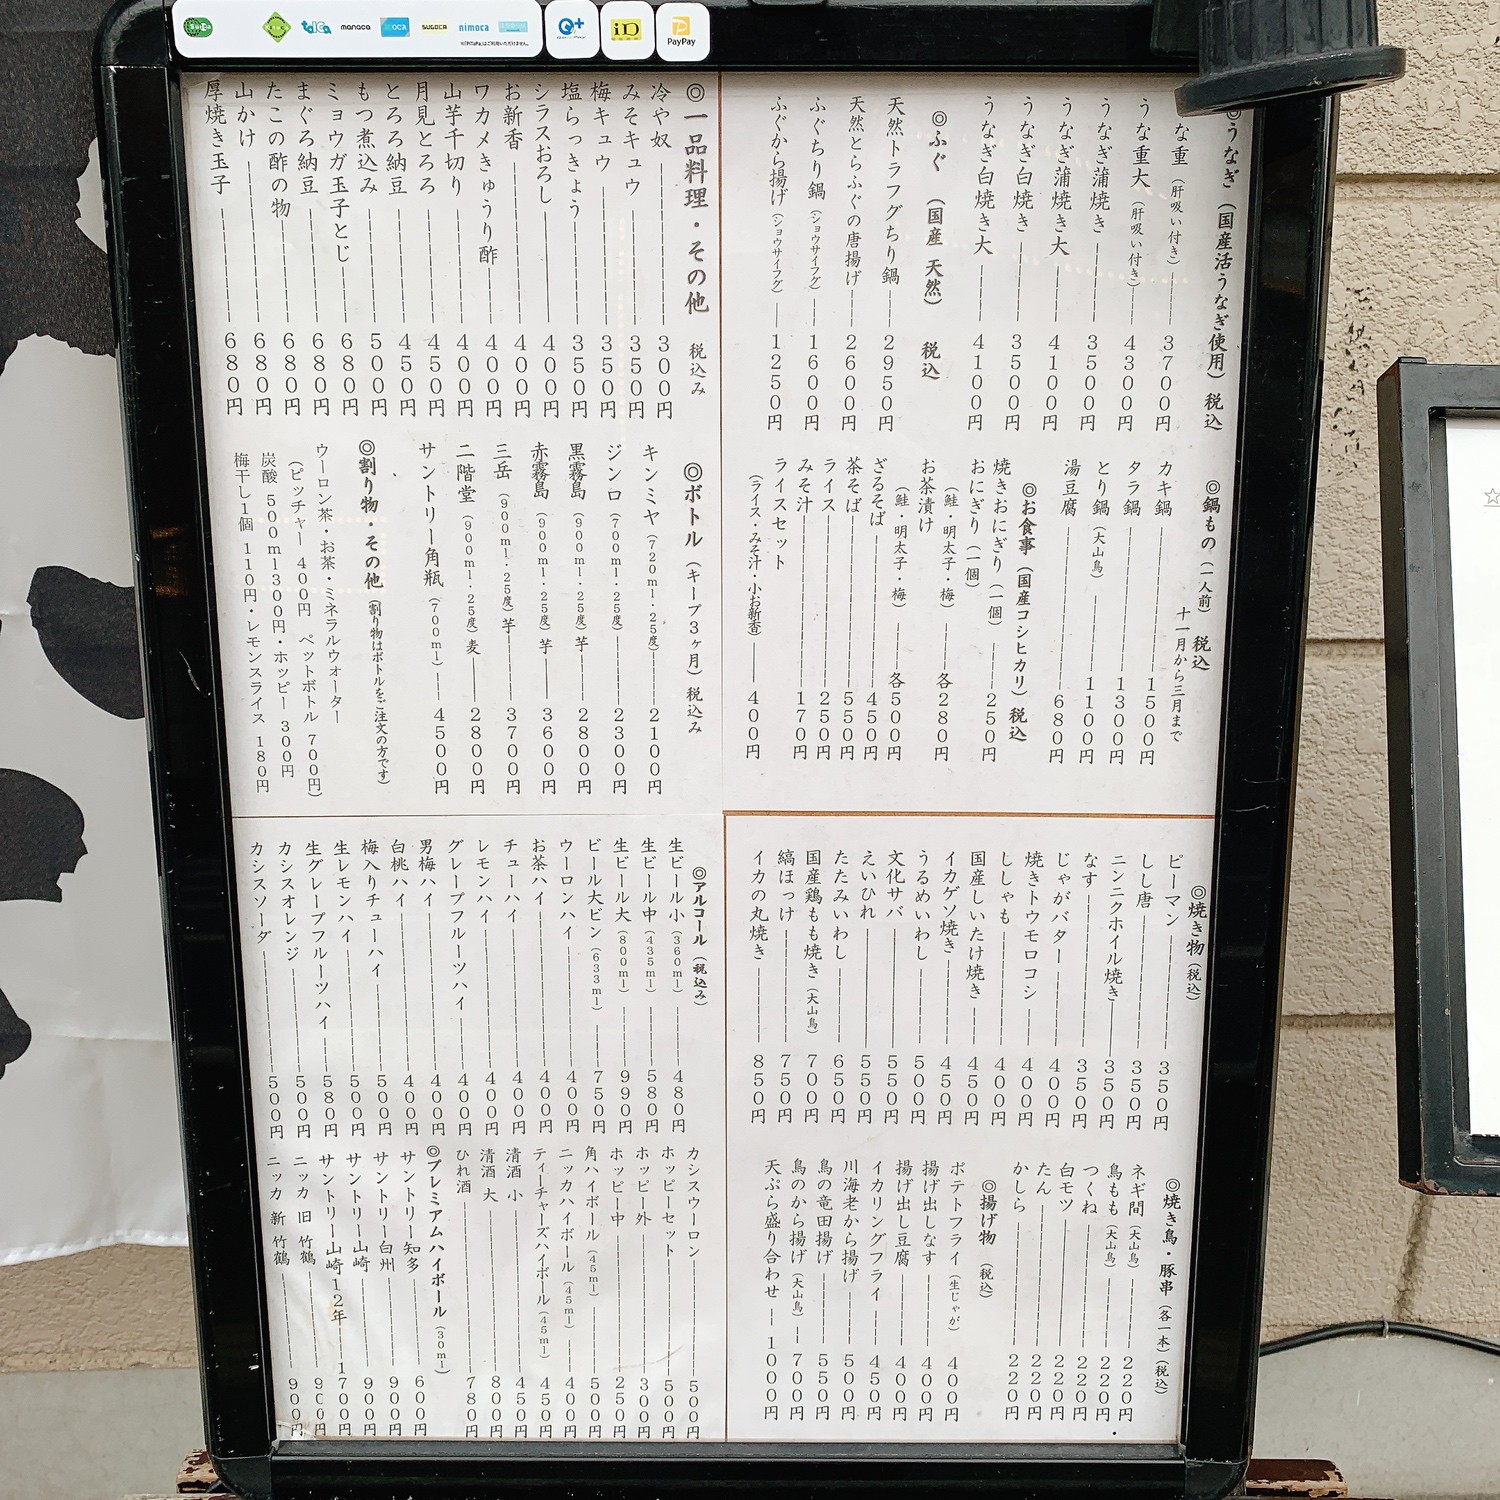 Suica
TOICA
manaca
ICOCA
SUGOCA
nimoca
※「PiTaPa」はご利用いただけません。
QUICPay+
iD
PayPay
◎うなぎ(国産活うなぎ使用) 税込
うな重(肝吸い付き) 3700円
うな重大(肝吸い付き) 4300円
うなぎ蒲焼き 3500円
うなぎ蒲焼き大 4100円
うなぎ白焼き 3500円
うなぎ白焼き大 4100円
◎ふぐ(国産 天然) 税込
天然トラフグちり鍋 2950円
天然とらふぐの唐揚げ 2600円
ふぐちり鍋(ショウサイフグ) 1600円
ふぐから揚げ(ショウサイフグ) 1250円
◎鍋もの(一人前) 税込
十一月から三月まで
カキ鍋 1500円
タラ鍋 1300円
とり鍋(大山鳥) 1100円
湯豆腐 680円
◎お食事(国産コシヒカリ) 税込
焼きおにぎり(一個) 250円
おにぎり(一個)
(鮭・明太子・梅) 各280円
お茶漬け
(鮭・明太子・梅) 各500円
ざるそば 450円
茶そば 550円
ライス 250円
みそ汁 170円
ライスセット
(ライス・みそ汁・小お新香) 400円
◎一品料理・その他 税込み
冷や奴 300円
みそキュウ 350円
梅キュウ 350円
塩らっきょう 350円
シラスおろし 400円
お新香 400円
ワカメきゅうり酢 400円
山芋千切り 400円
月見とろろ 450円
とろろ納豆 450円
もつ煮込み 500円
ミョウガ玉子とじ 680円
まぐろ納豆 680円
たこの酢の物 680円
山かけ 680円
厚焼き玉子 680円
◎ボトル(キープ3ヶ月)税込み
キンミヤ(720ml・25度) 2100円
ジンロ(700ml・25度) 2300円
黒霧島(900ml・25度)芋 2800円
赤霧島(900ml・25度)芋 3600円
三岳(900ml・25度)芋 3700円
二階堂(900ml・25度)麦 2800円
サントリー角瓶(700ml) 4500円
◎割り物・その他(割り物はボトルをご注文の方です)
ウーロン茶・お茶・ミネラルウォーター
(ピッチャー 400円 ペットボトル 700円)
炭酸 500ml300円・ホッピー 300円
梅干し1個 110円・レモンスライス 180円
◎焼き物(税込)
ピーマン 350円
しし唐 350円
ニンニクホイル焼き 350円
なす 350円
じゃがバター 400円
焼きトウモロコシ 400円
ししゃも 400円
国産しいたけ焼き 450円
イカゲソ焼き 450円
うるめいわし 500円
文化サバ 550円
えいひれ 550円
たたみいわし 650円
国産鶏もも焼き(大山鳥) 700円
縞ほっけ 750円
イカの丸焼き 850円
◎焼き鳥・豚串(各一本)(税込)
ネギ間(大山鳥) 220円
鳥もも(大山鳥) 220円
つくね 220円
白モツ 220円
たん 220円
かしら 220円
◎揚げ物(税込)
ポテトフライ(生じゃが) 400円
揚げ出しなす 400円
揚げ出し豆腐 400円
イカリングフライ 450円
川海老から揚げ 500円
鳥の竜田揚げ 550円
鳥のから揚げ(大山鳥) 700円
天ぷら盛り合わせ 1000円
◎アルコール(税込み)
生ビール小(360ml) 480円
生ビール中(435ml) 580円
生ビール大(800ml) 990円
ビール大ビン(633ml) 750円
ウーロンハイ 400円
お茶ハイ 400円
チューハイ 400円
レモンハイ 400円
グレープフルーツハイ 400円
男梅ハイ 400円
白桃ハイ 400円
梅入りチューハイ 500円
生レモンハイ 500円
生グレープフルーツハイ 580円
カシスオレンジ 500円
カシスソーダ 500円
カシスウーロン 500円
ホッピーセット 500円
ホッピー外 300円
ホッピー中 250円
角ハイボール(45ml) 500円
ニッカハイボール(45ml) 400円
ティーチャーズハイボール(45ml) 450円
清酒 小 450円
清酒 大 800円
ひれ酒 780円
◎プレミアムハイボール(30ml)
サントリー知多 600円
サントリー白州 900円
サントリー山崎 900円
サントリー山崎12年 1700円
ニッカ 旧 竹鶴 900円
ニッカ 新 竹鶴 900円